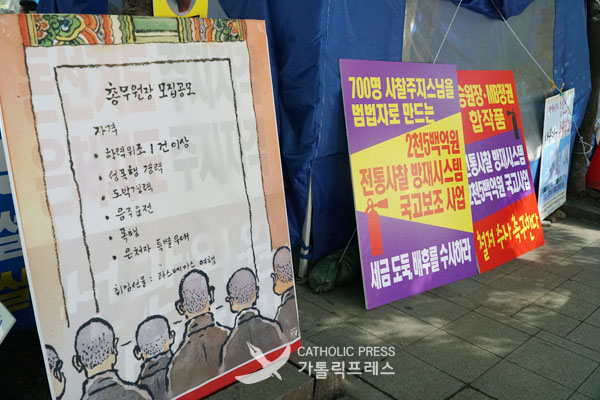 총무원장 모집공모
자격
• 학력위조 1건 이상
• 성폭행 경력
• 도박경력
• 음주운전
• 폭행
• 은처자 특별우대
취임선물 : 라스베이거스 여행
700명 사찰주지스님을
범법자로 만드는
2천5백억원
전통사찰 방재시스템
국고보조 사업
세금 도둑 배후를 수사하라
원장·MB정권
합작품
전통사찰 방재시스템
2천5백억원 국고사업
철저 수사 촉구한다
CATHOLIC PRESS
가톨릭프레스